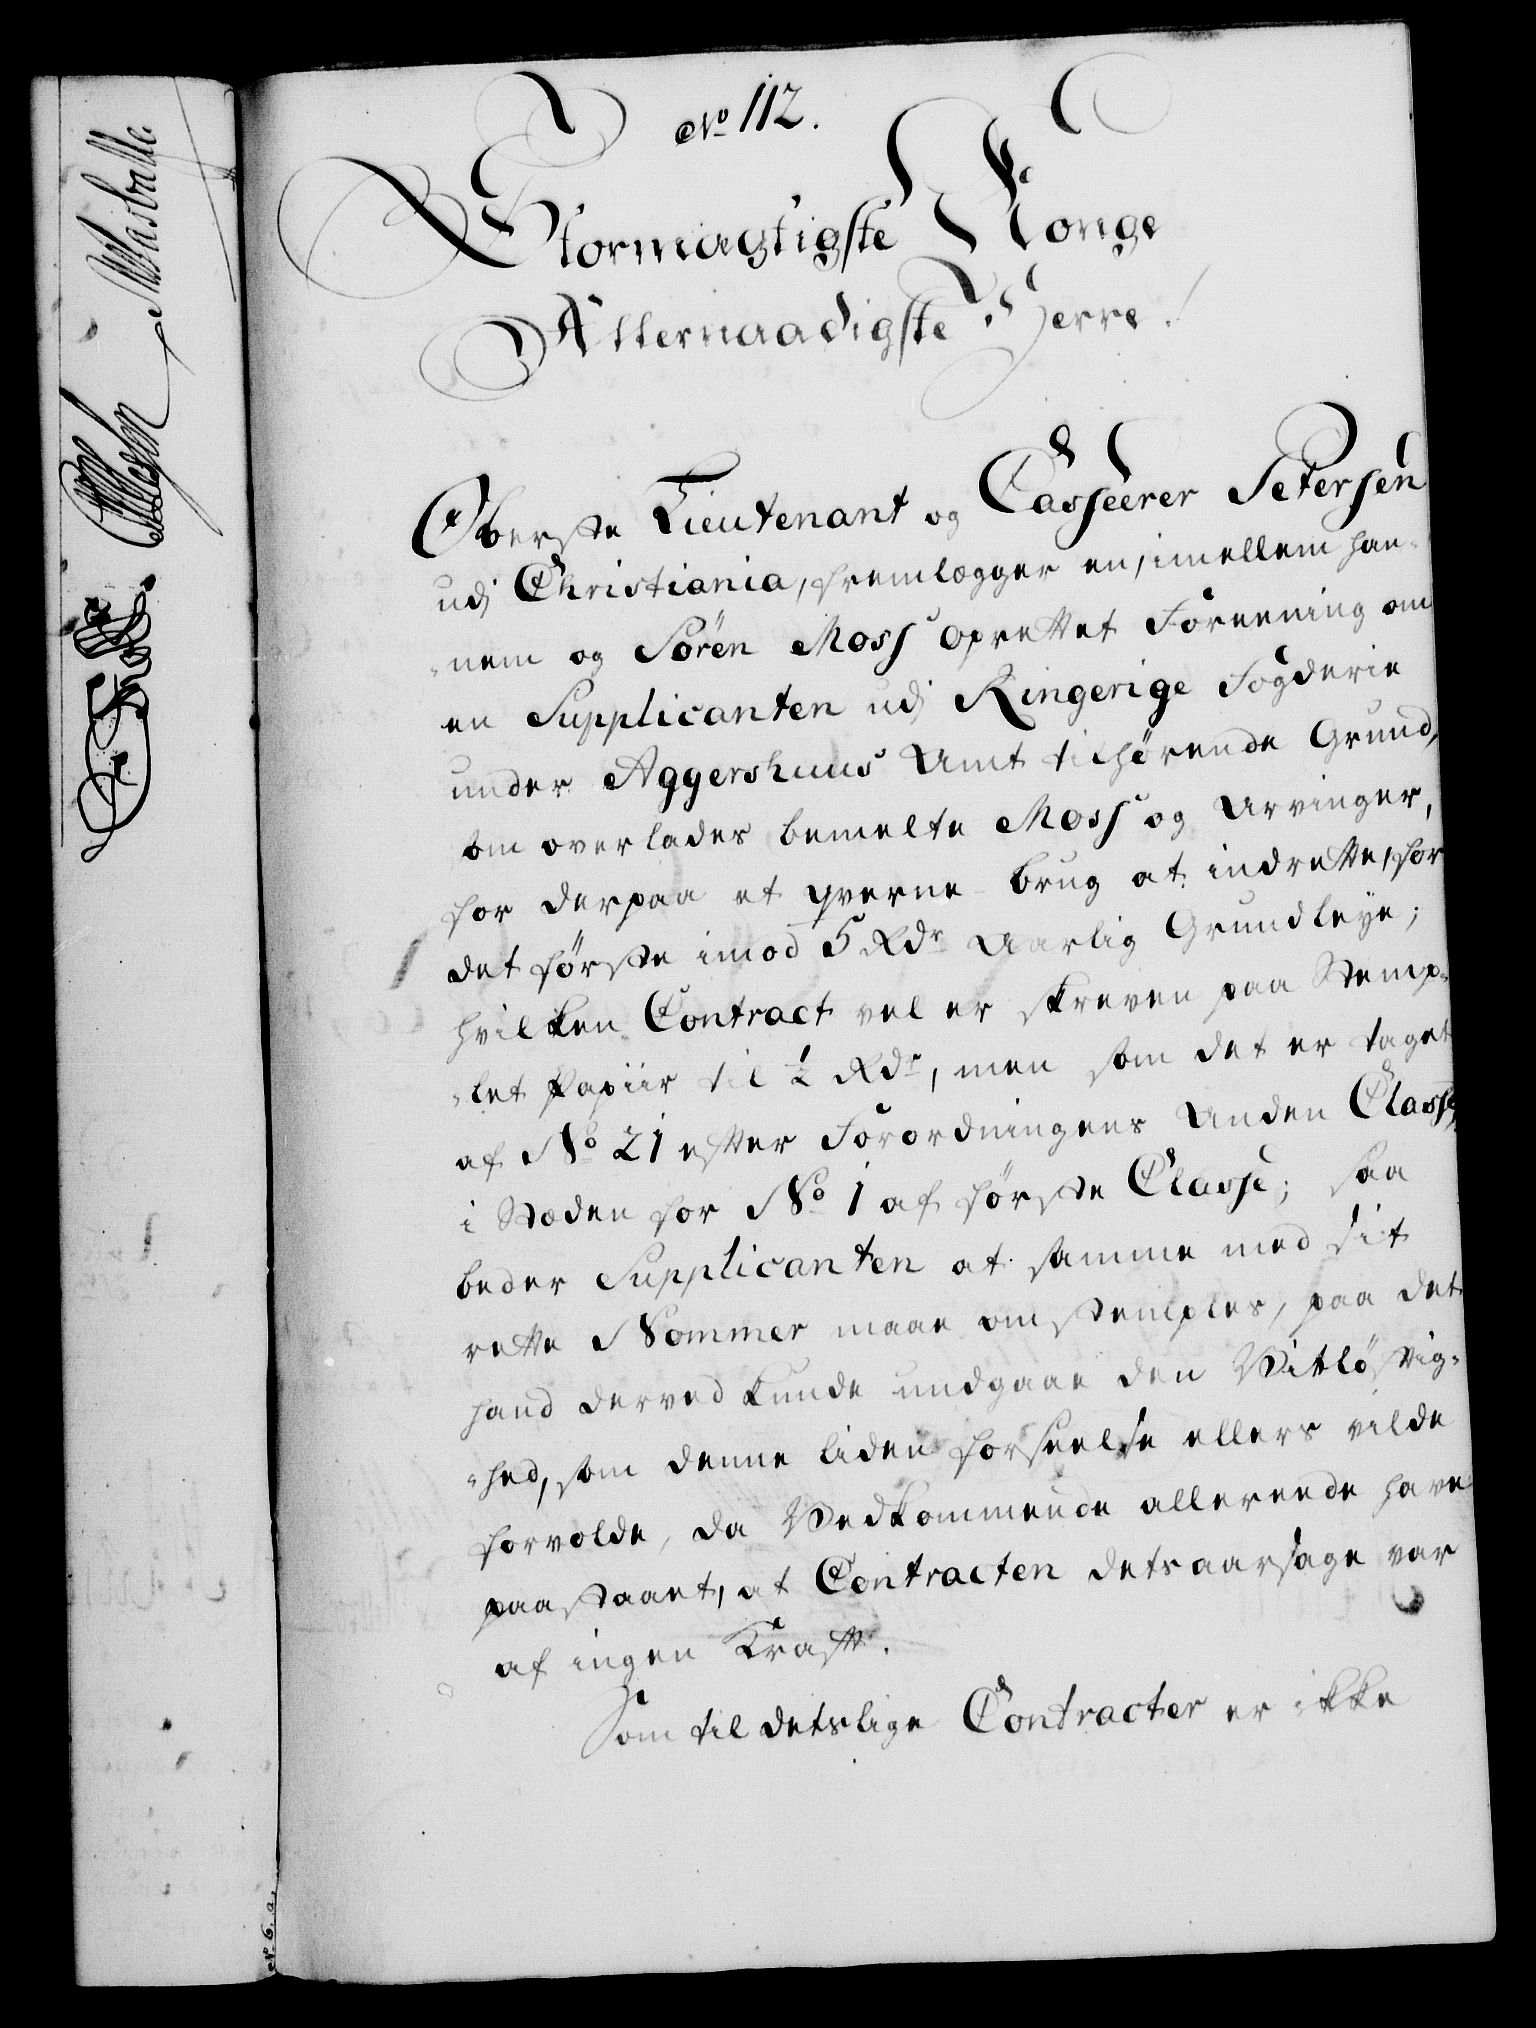 No 112.
Stormægtigste Konge
Allernaadigste Herre!
Oberste Lieutenant og Casseerer Petersen
udj Christiania, fremlægger en, imellem han-
-nem og Søren Moss oprettet Foreening om
en Supplicanten udj Ringerige Fogderie
under Aggershuus Amt tilhørende Grund,
som overlades bemelte Moss og Arvinger,
for derpaa et qverne-brug at indrette, for
det første imod 5 Rdr aarlig Grundleye;
hvilken Contract vel er skreven paa Stemp-
-let Papiir til ½ Rdr, men som det er taget
af No 21 efter Forordningens Anden Classe,
i Stæden for No 1 af første Classe; saa
beder Supplicanten at samme med sit
rette Nommer maae omstemples, paa det
hand derved kunde undgaae den Vitløftig-
-hed, som denne liden forseelse ellers vilde
forvolde, da Vedkommende allereede have
paastaaet, at Contracten detsaarsage var
af ingen Kraft.
Som til detslige Contracter er ikke
No. 6. a.